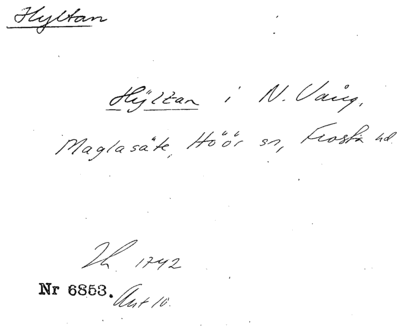 Hyltan
Hÿltan i N. Vång,
Maglasäte, Höör sn, Frosta hd.
1742
Nr 6853.